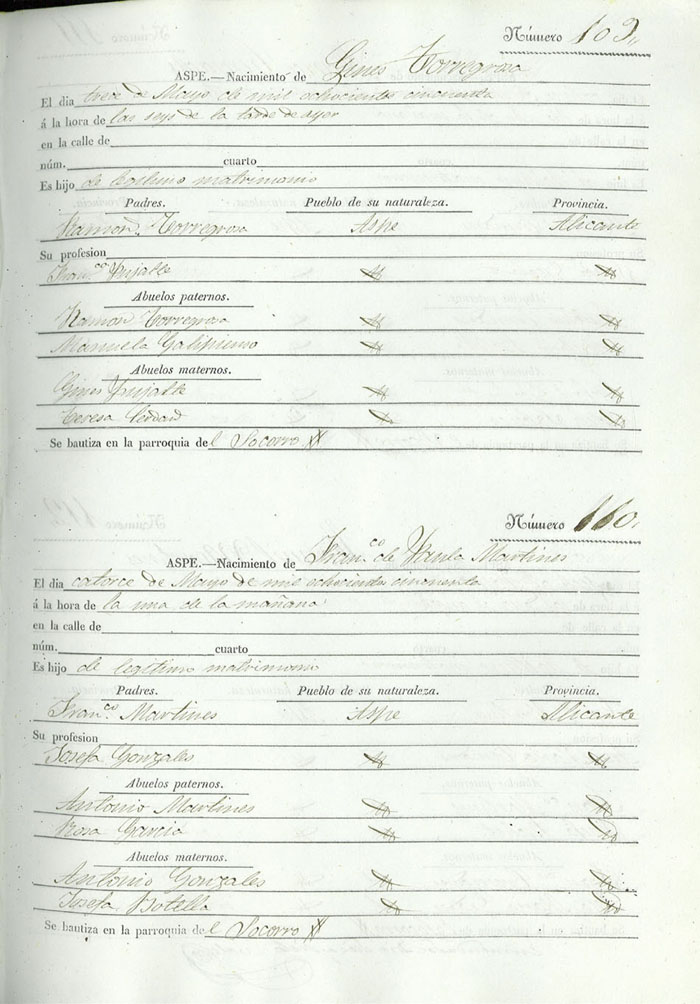 Número 109
ASPE.—Nacimiento de Gines Torregrosa
El dia trece de Mayo de mil ochociento cincuenta
á la hora de las seys de la tarde de ayer
en la calle de
núm. cuarto
Es hijo de legitimo matrimonio
Padres. Pueblo de su naturaleza. Provincia.
Ramon Torregrosa Aspe Alicante
Su profesion
Fran.co Pujalte
Abuelos paternos.
Ramon Torregrosa
Manuela Galipienso
Abuelos maternos.
Gines Pujalte
Teresa Cerdan
Se bautiza en la parroquia del Socorro
Número 110.
ASPE.—Nacimiento de Fran.co de Paula Martines
El dia catorce de Mayo de mil ochociento cincuenta
á la hora de la una de la mañana
en la calle de
núm. cuarto
Es hijo de legitimo matrimonio
Padres. Pueblo de su naturaleza. Provincia.
Fran.co Martines Aspe Alicante
Su profesion
Josefa Gonzales
Abuelos paternos.
Antonio Martines
Rosa Garcia
Abuelos maternos.
Antonio Gonzales
Josefa Botella
Se bautiza en la parroquia del Socorro